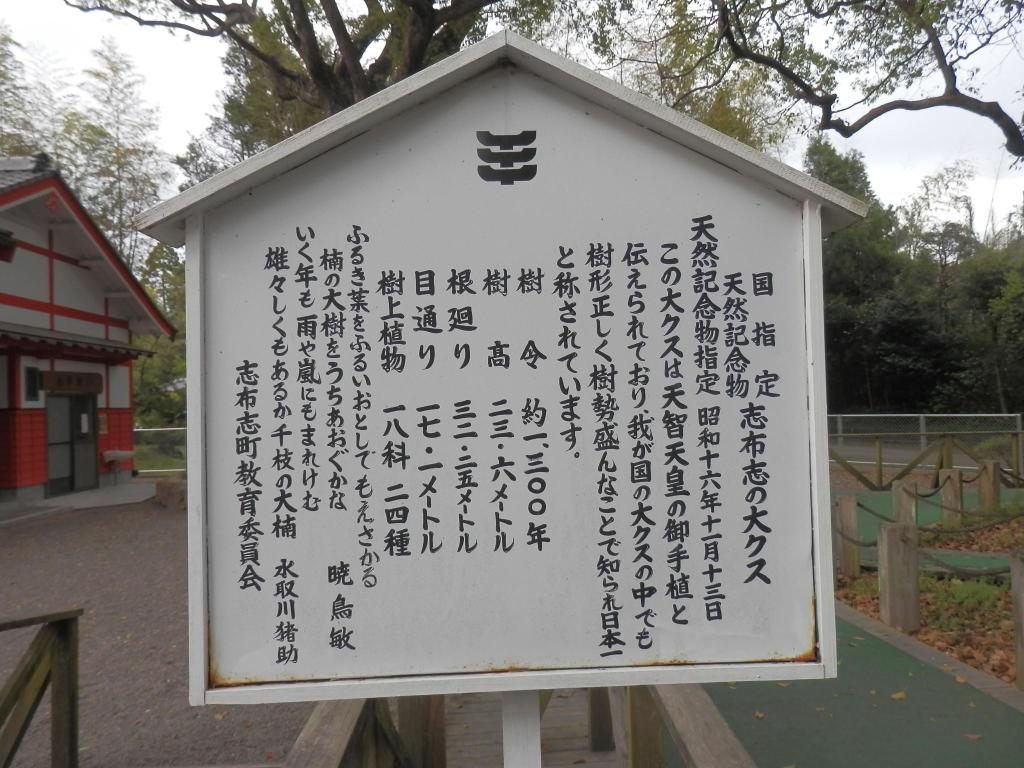 国指定
天然記念物 志布志の大クス
天然記念物指定 昭和十六年十一月十三日
この大クスは天智天皇の御手植と
伝えられており、我が国の大クスの中でも
樹形正しく樹勢盛んなことで知られ日本一
と称されています。
樹令 約一、三〇〇年
樹高 二三・六メートル
根廻り 三二・二五メートル
目通り 一七・一メートル
樹上植物 一八科 二四種
ふるき葉をふるいおとしてもえさかる
楠の大樹をうちあおぐかな 暁烏敏
いく年も雨や嵐にもまれけむ
雄々しくもあるか千枝の大楠 水取川猪助
志布志町教育委員会